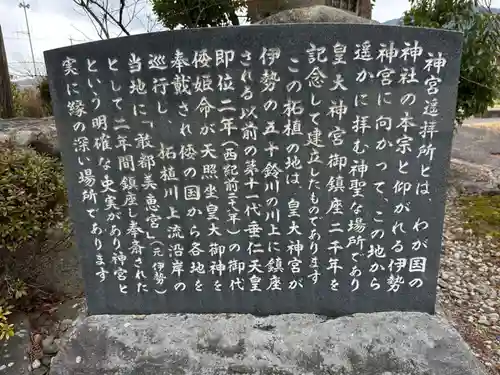 神宮遥拝所とは、わが国の
神社の本宗と仰がれる伊勢
神宮に向かって、この地から
遥かに拝む神聖な場所であり
皇大神宮御鎮座二千年を
記念して建立したものであります
この柘植の地は、皇大神宮が
伊勢の五十鈴川の川上に鎮座
される以前の第十一代垂仁天皇
即位二年(西紀前二八年)の御代
倭姫命が天照坐皇大御神を
奉戴され倭の国から各地を
巡行し、柘植川上流沿岸の
当地に「敢都美恵宮」(元伊勢)
として二年間鎮座し奉斎された
という明確な史実があり神宮と
実に縁の深い場所であります